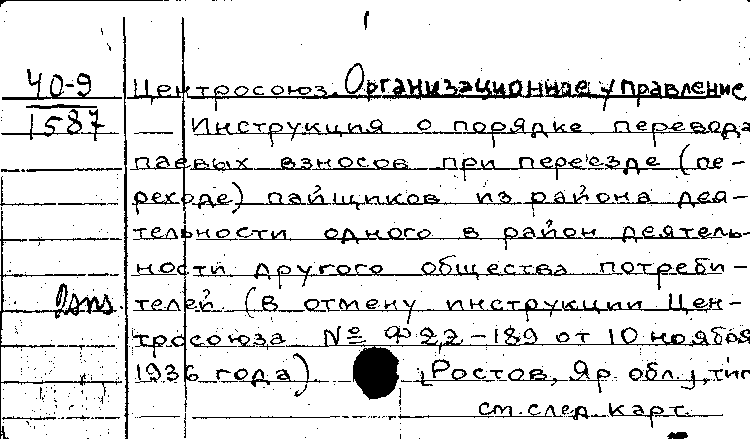 40-9 Центросоюз. Организационное управление
1587 Инструкция о порядке перевода
паевых взносов при переезде (пе-
реходе) пайщиков из района дея-
тельности одного в район деятель-
ности другого общества потреби-
телей (в отмену инструкции Цен-
тросоюза № Ф22-189 от 10 ноября
1936 года). [Ростов, Яр. обл.], тип
см. след. карт.